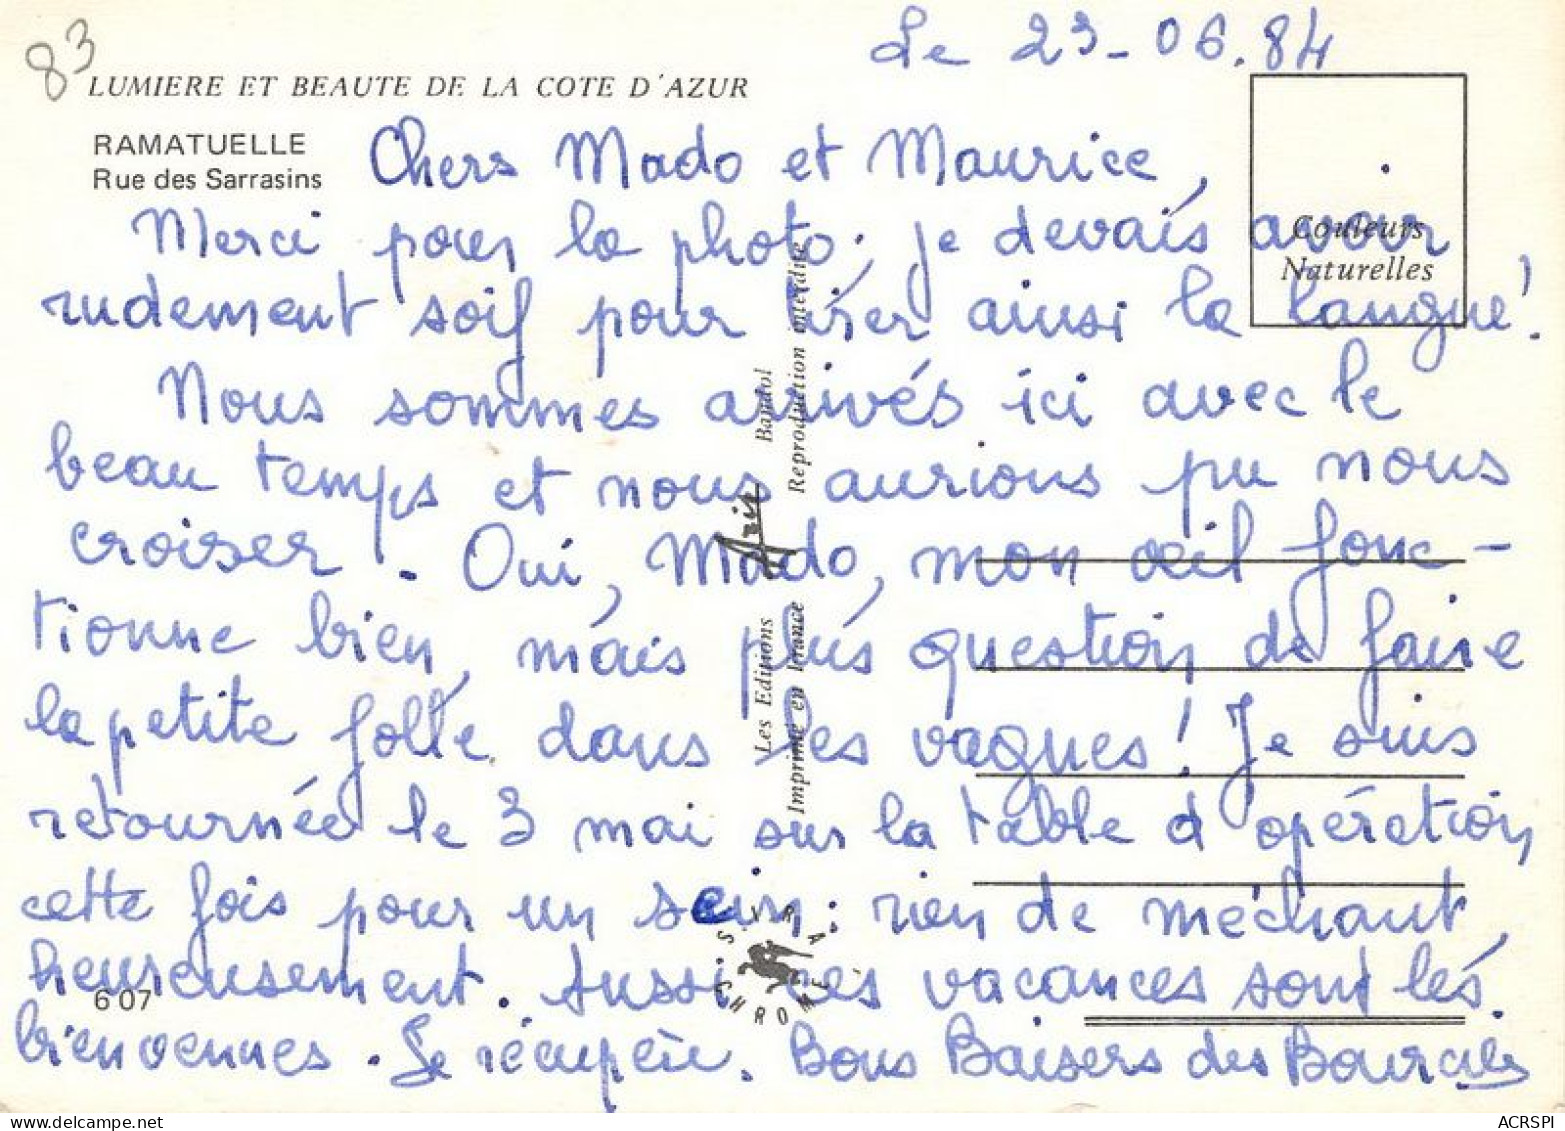 83
Le 23-06.84
LUMIERE ET BEAUTE DE LA COTE D'AZUR
RAMATUELLE
Rue des Sarrasins
Couleurs
Naturelles
Chers Mado et Maurice,
Merci pour la photo; je devais avoir
rudement soif pour tirer ainsi la langue!
Nous sommes arrivés ici avec le
beau temps et nous aurions pu nous
croiser. Oui, Mado, mon œil fonc-
tionne bien, mais plus question de faire
la petite folle dans les vagues! Je suis
retournée le 3 mai sur la table d'opération,
cette fois pour un sein: rien de méchant,
heureusement. Aussi ces vacances sont les
bienvenues. Je récupère. Bons Baisers des
Les Editions Azir Bandol
Imprimé en France Reproduction interdite
SYRACHROME
607
ACRSPI